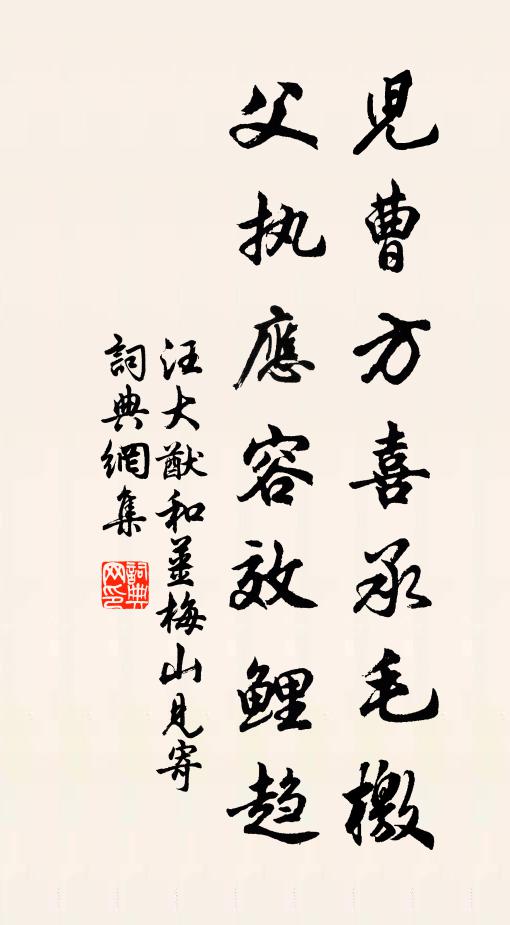 児曹方喜承毛檄
父执應容效鲤趋
汪大猷和姜梅山见寄
詞典網集
詞典网印